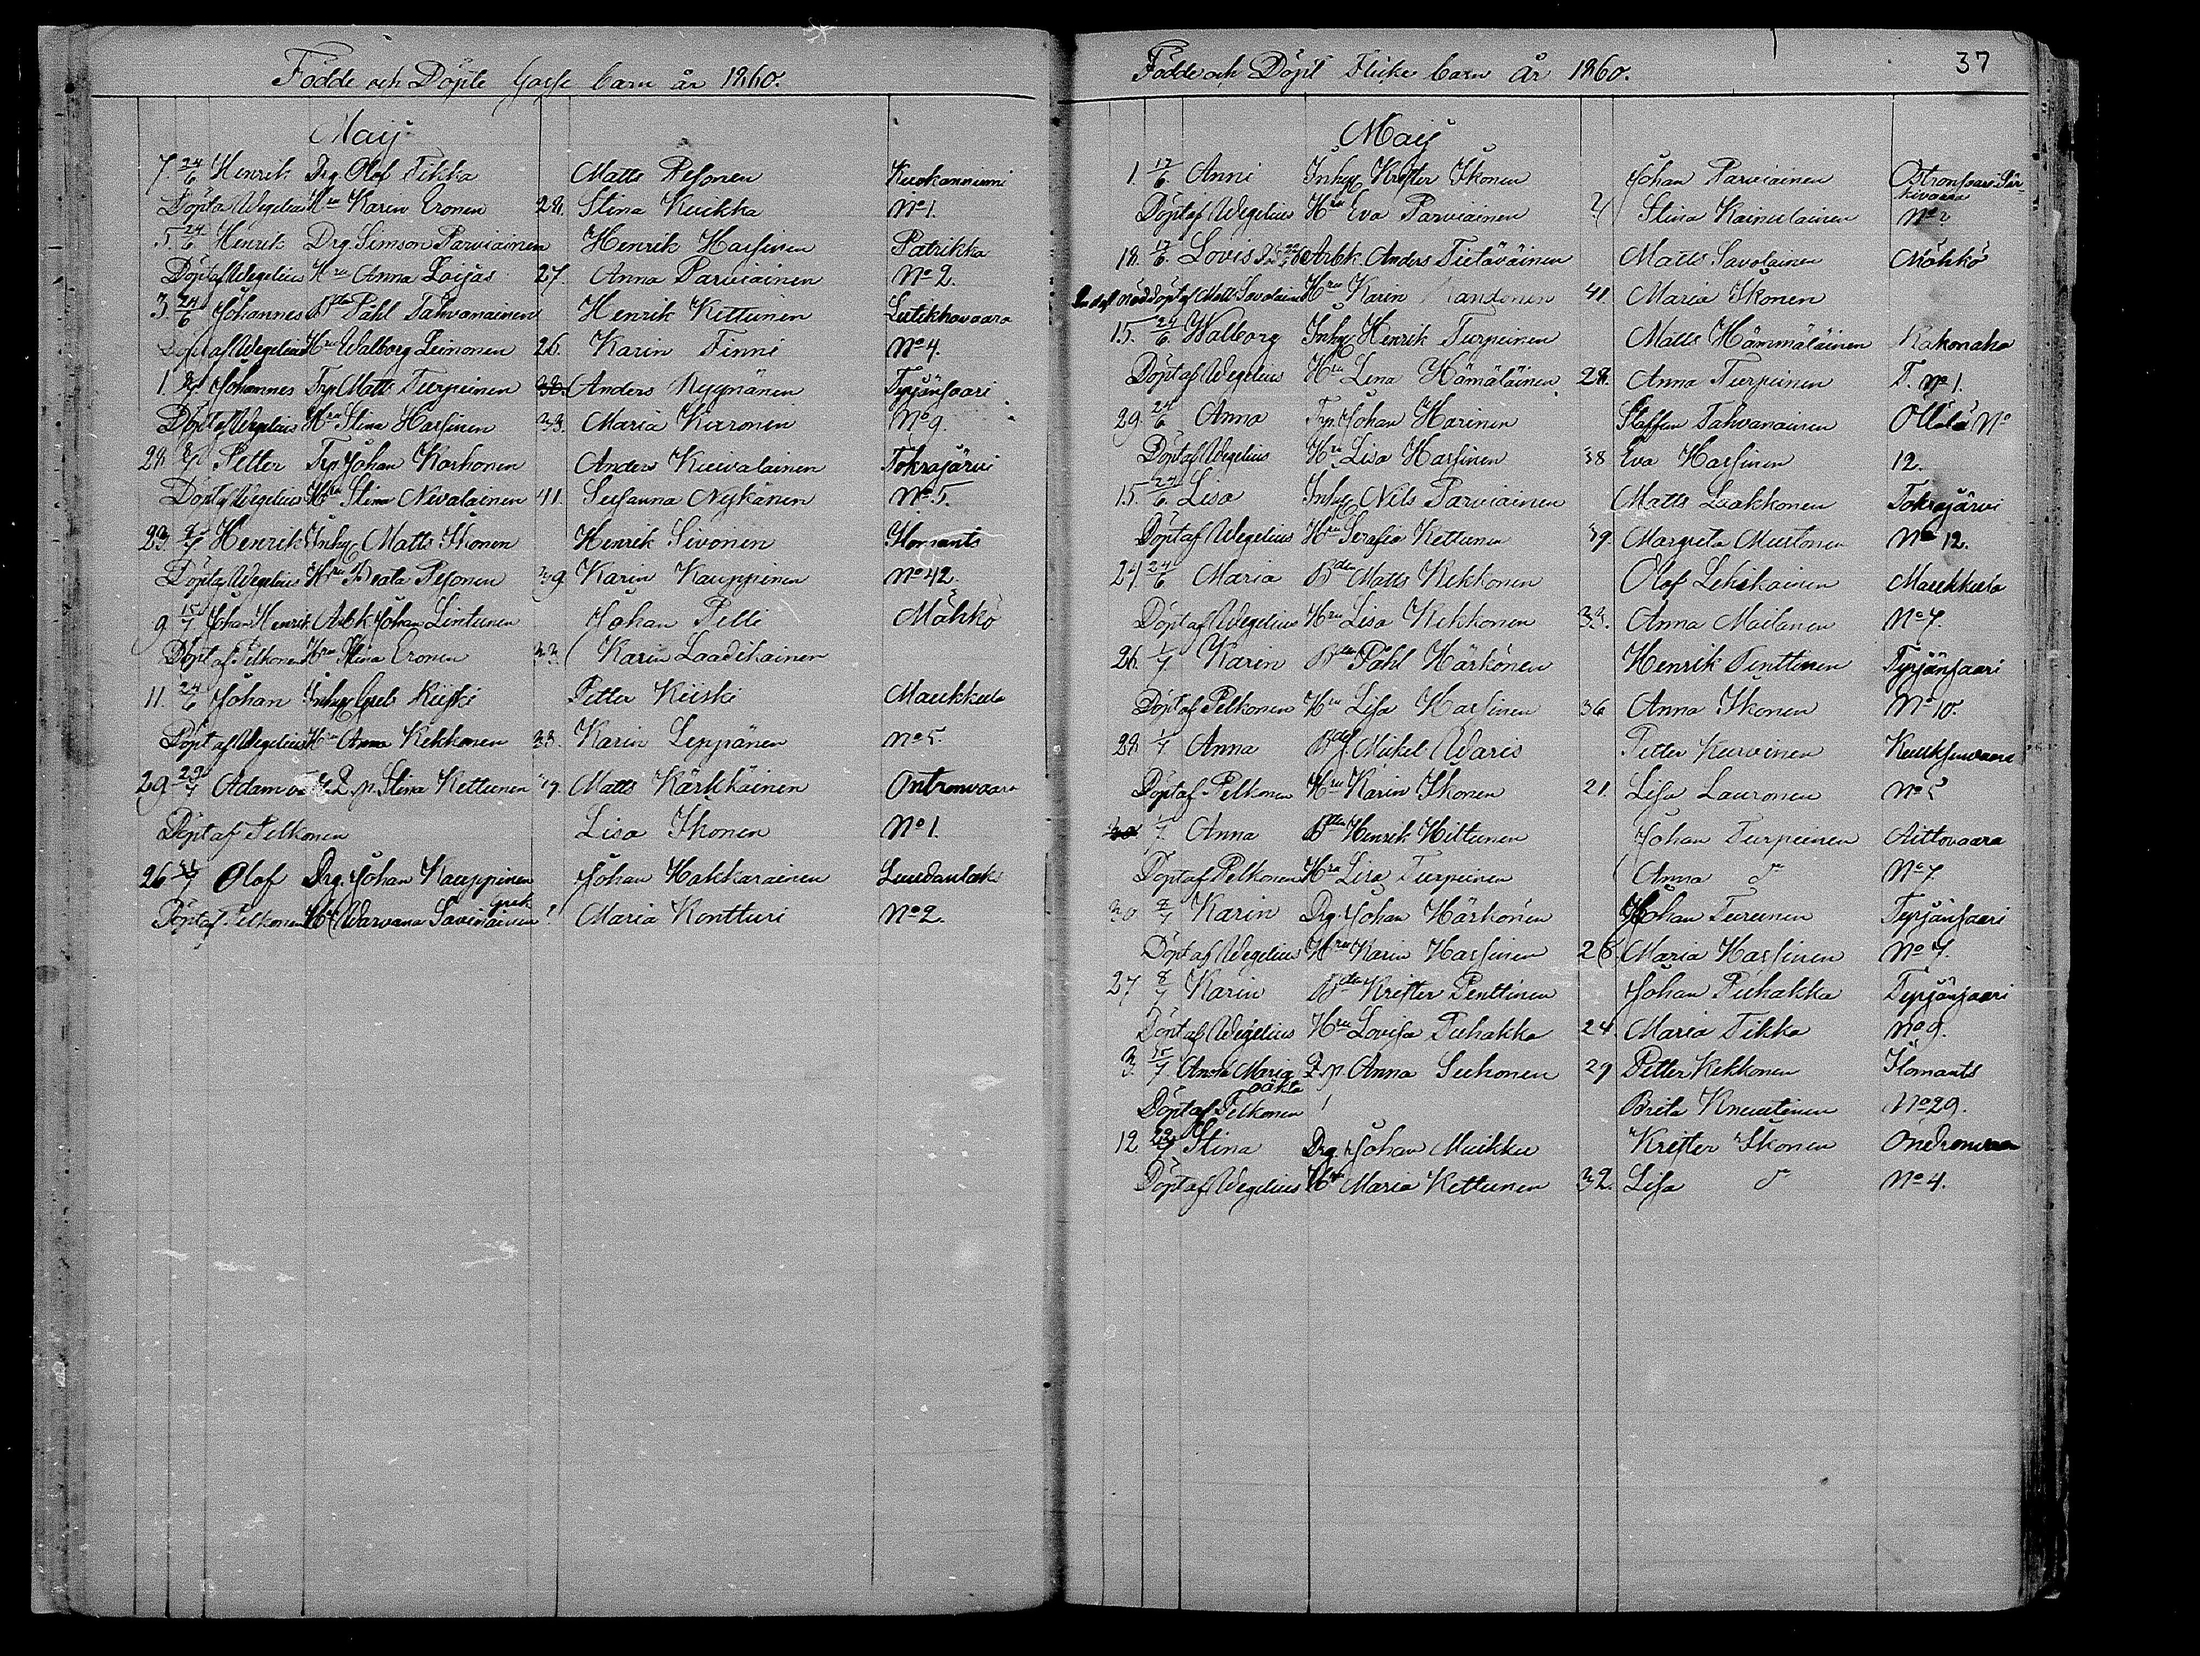 Födde och Döpte Gosse barn år 1860.
Maij
7. 24/6 Henrik Drg. Olof Tikka Matts Pesonen Kuokanniemi
Döpt a Wegelius Hru Karin Eronen 28. Stina Kuikka No 1.
5. 24/6 Henrik Drg. Simson Parviainen Henrik Hassinen Patrikka
Döpt af Wegelius Hru Anna Loijas 27. Anna Parviainen No 2.
3 24/6 Johannes Påhl Tahvanainen Henrik Kettunen Lutikkavaara
Döpt af Wegelius Hru Walborg Leinonen 26. Karin Tinni No 4.
1 Johannes Trp. Matts Turpeinen 38. Anders Ryynänen Tyrjänsaari
Döpt af Wegelius Hru Stina Hassinen 33. Maria Kuronen No 9.
28. 8/7 Petter Trp Johan Korhonen Anders Kuivalainen Tokrajärvi
Döpt af Wegelius Hru Stina Nevalainen 41. Susanna Nykänen No 5.
23. 8/7 Henrik Inhy Matts Ikonen Henrik Sivonen Ilomants
Döpt af Wegelius Hru Beata Pesonen 39. Karin Kauppinen No 42.
9 15/7 Johan Henrik Arbk Johan Lintunen Johan Pelli Möhkö
Döpt af Pelkonen Hru Stina Eronen 33. Karin Laadikainen
11. 24/6 Johan Inhy Kiiski Petter Kiiski Maukkula
Döpt af Wegelius Hru Anna Kekkonen 33. Karin Leppänen No 5.
29 29/7 Adam Q. p. Stina Kettunen Matts Kärkkäinen Ontronvaara
Döpt af Pelkonen Lisa Ikonen No 1.
26 Olof Drg. Johan Kauppinen Johan Hakkarainen Luudanlaks
grek
Döpt af Pelkonen Hru Warvana Savinainen ? Maria Kontturi No 2.
Födde och Döpte Flicke barn år 1860.
37
Maij
1. 17/6. Anni Inhy Krister Ikonen Johan Parviainen
Döpt af Wegelius Hru Eva Parviainen Stina Kainulainen No 2
18. 17/6. Lovis Arbk Anders Tietäväinen Matts Savolainen Möhkö
nöddöpt af Matts Savolainen Hru Karin 41. Maria Ikonen
15. 24/6. Walborg Inhy Henrik Turpeinen Matts Hämmäläinen Kakonaho
Döpt af Wegelius Hru Lena Hämäläinen 28. Anna Turpeinen T. No 1.
29. 24/6 Anna Trp. Johan Harinen Staffan Tahvanainen Ollola No
Döpt af Wegelius Hru Lisa Hassinen 38 Eva Hassinen 12.
15. 24/6. Lisa Inhy Nils Parviainen Matts Laakkonen Tokrajärvi
Döpt af Wegelius Hru Serafia Kettunen 39 Margreta Mustonen No 12.
24. 24/6 Maria Bden Matts Kekkonen Olof Lehikainen Maukkula
Döpt af Wegelius Hru Lisa Kekkonen 33. Anna Moilanen No 7.
26. 1/7 Karin Bden Påhl Härkönen Henrik Tenttinen Tyrjänsaari
Döpt af Pelkonen Hru Lisa Hassinen 36 Anna Ikonen No 10.
28. 1/7 Anna Bden Mikel Waris Petter Kurvinen Kuuksenvaara
Döpt af Pelkonen Hru Karin Ikonen 21. Lisa Lauronen No 5
30 1/7 Anna Bden Henrik Hiltunen Johan Turpeinen Aittovaara
Döpt af Pelkonen Hru Lisa Turpeinen Anna do No 7
30 8/7 Karin Drg. Johan Härkönen Johan Turunen Tyrjänsaari
Döpt af Wegelius Hru Karin Hassinen 26 Maria Hassinen No 7.
27 8/7 Karin Bden Krister Penttinen Johan Puhakka Tyrjänsaari
Döpt af Wegelius Hru Lovisa Puhakka 24. Maria Tikka No 9.
3. 15/7 Anna Maria Q. p. Anna Suhonen 29 Petter Kekkonen Ilomants
oäkta
Döpt af Pelkonen Brita Knuutinen No 29.
12. 22/7 Stina Drg. Johan Muikku Krister Ikonen Ondronvaara
Döpt af Wegelius Hru Maria Kettunen 32. Lisa do No 4.